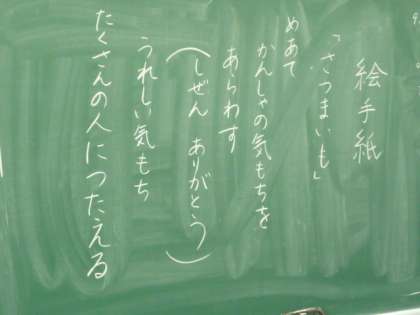 絵手紙
「さつまいも」
めあて
かんしゃの気もちを
あらわす
（しぜん ありがとう）
うれしい気もち
たくさんの人につたえる